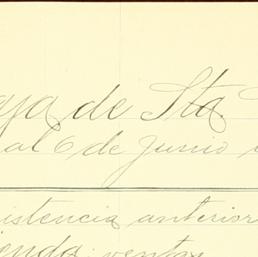 aja de Sta
al 6 de Junio
istencia anterior
ienda, ventas